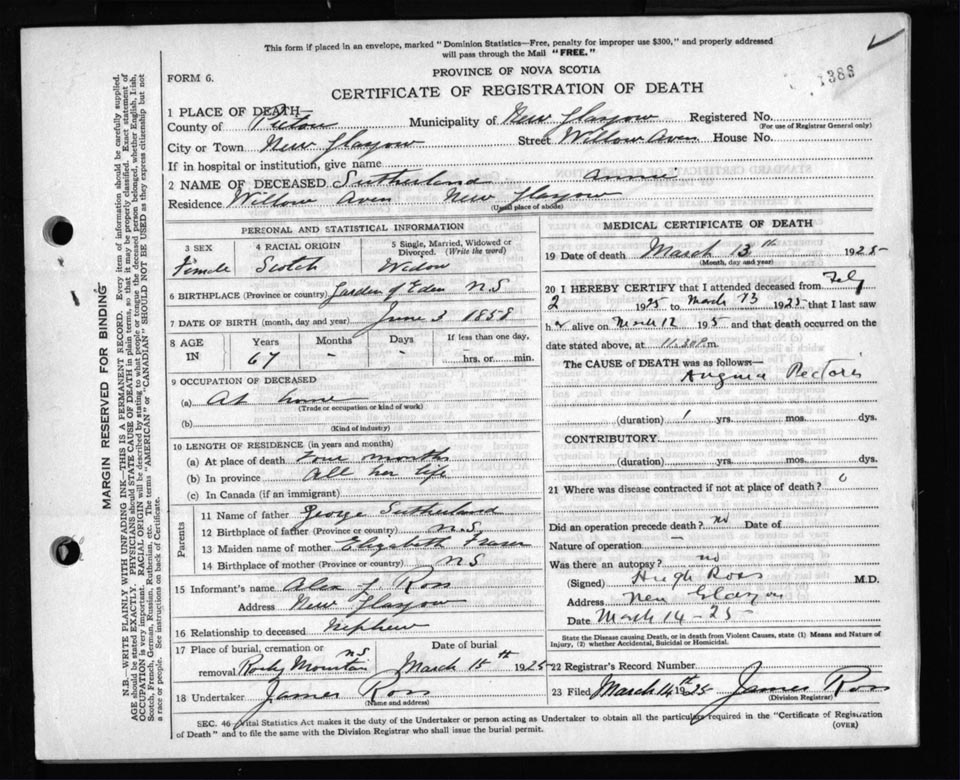 This form if placed in an envelope, marked "Dominion Statistics—Free, penalty for improper use $300," and properly addressed
will pass through the Mail "FREE."
1388
FORM 6.
PROVINCE OF NOVA SCOTIA
CERTIFICATE OF REGISTRATION OF DEATH
1 PLACE OF DEATH—
County of Pictou Municipality of New Glasgow Registered No.
(For use of Registrar General only)
City or Town New Glasgow Street Willow Aven House No.
If in hospital or institution, give name
2 NAME OF DECEASED Sutherland Annie
Residence Willow Aven New Glasgow
(Usual place of abode)
PERSONAL AND STATISTICAL INFORMATION
3 SEX 4 RACIAL ORIGIN 5 Single, Married, Widowed or
Divorced. (Write the word)
Female Scotch Widow
6 BIRTHPLACE (Province or country) Garden of Eden N.S
7 DATE OF BIRTH (month, day and year) June 3 1858
8 AGE Years Months Days If less than one day,
IN 67 - - hrs. or min.
9 OCCUPATION OF DECEASED
(a) At home
(Trade or occupation or kind of work)
(b)
(Kind of industry)
10 LENGTH OF RESIDENCE (in years and months)
(a) At place of death Four months
(b) In province All her life
(c) In Canada (if an immigrant)
Parents
11 Name of father George Sutherland
12 Birthplace of father (Province or country) N.S.
13 Maiden name of mother Elizabeth Fraser
14 Birthplace of mother (Province or country) N S
15 Informant's name Alex Ross
Address New Glasgow
16 Relationship to deceased Nephew
17 Place of burial, cremation or Date of burial
removal Rocky Mountain N S March 15th 1925
18 Undertaker James Ross
(Name and address)
MEDICAL CERTIFICATE OF DEATH
19 Date of death March 13th 1925
(Month, day and year)
20 I HEREBY CERTIFY that I attended deceased from Feby
2 1925 to March 13 1925 that I last saw
her alive on March 12 195 and that death occurred on the
date stated above, at 11.30 P.m.
The CAUSE OF DEATH was as follows—
Angina Pectoris
(duration) 1 yrs. mos. dys.
CONTRIBUTORY
(duration) yrs. mos. dys.
21 Where was disease contracted if not at place of death? 0
Did an operation precede death? no Date of
Nature of operation —
Was there an autopsy? no
(Signed) Hugh Ross M.D.
Address New Glasgow
Date March 14-25
State the Disease causing Death, or in death from Violent Causes, state (1) Means and Nature of
Injury, (2) whether Accidental, Suicidal or Homicidal.
22 Registrar's Record Number
23 Filed March 14th 1925 James Ross
(Division Registrar)
SEC. 46 Vital Statistics Act makes it the duty of the Undertaker or person acting as Undertaker to obtain all the particulars required in the "Certificate of Registration
of Death" and to file the same with the Division Registrar who shall issue the burial permit.
(OVER)
MARGIN RESERVED FOR BINDING
N.B.—WRITE PLAINLY WITH UNFADING INK—THIS IS A PERMANENT RECORD. Every item of information should be carefully supplied.
AGE should be stated EXACTLY. PHYSICIANS should STATE CAUSE OF DEATH in plain terms, so that it may be properly classified. Exact statement of
OCCUPATION is very important. RACIAL ORIGIN will be described by stating to what people or tongue the deceased person belonged, whether English, Irish,
Scotch, French, German, Russian, Ruthenian, etc. The terms "AMERICAN" or "CANADIAN" SHOULD NOT BE USED as they express citizenship but not
a race or people. See instructions on back of Certificate.